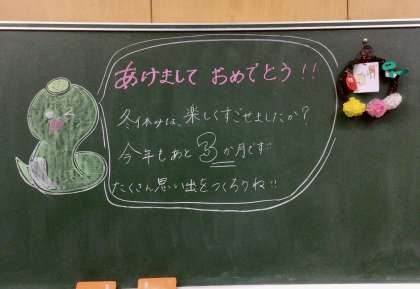 あけまして おめでとう!!
冬休みは、楽しくすごせましたか?
今年もあと3か月です!!
たくさん思い出をつくろうね!!